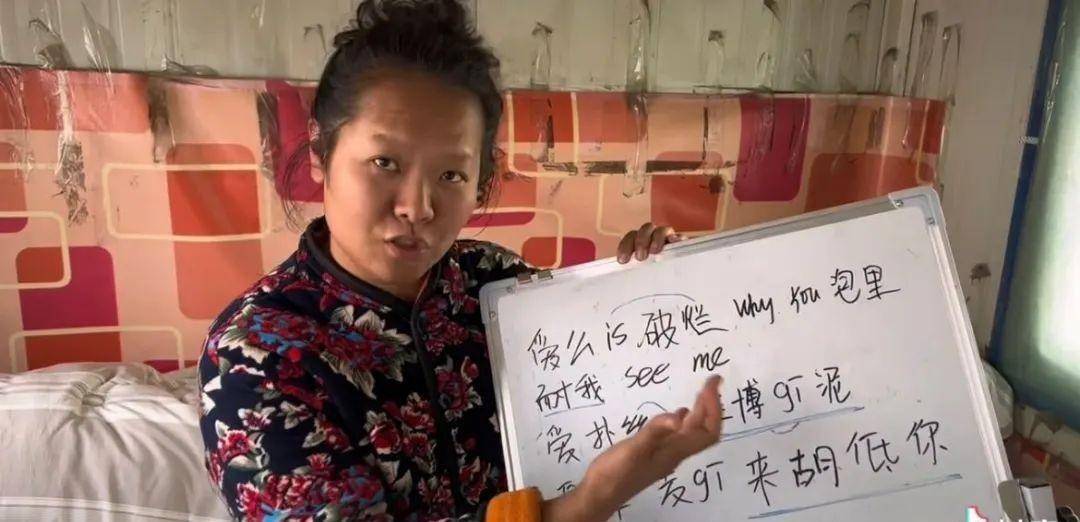 爱么is破烂 why you 泡里
耐我 see me
爱扑丝 博gī泥
爱 gī来胡低你